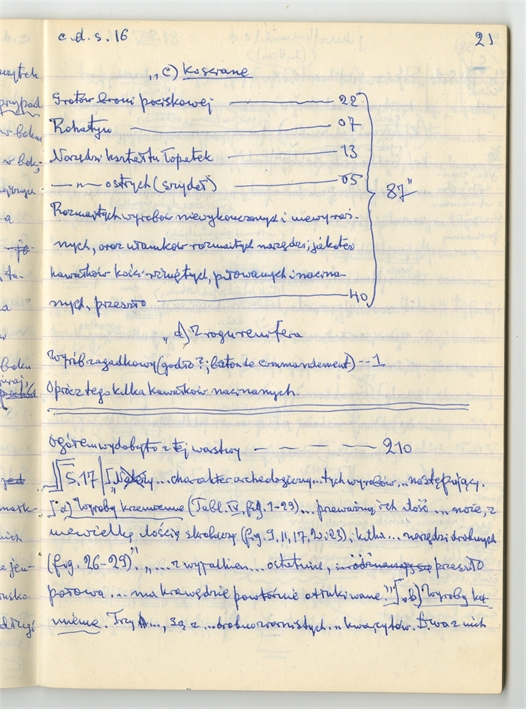 c.d.s. 16
21
„c) Kościane
Grotów broni pociskowej — 22
Rohatyn — 07
Narzędzi kształtu łopatek — 13
—„— ostrych (szydeł) — 05
87"
Rozmaitych wyrobów niewykończonych i niewyraź-
nych, oraz ułamków rozmaitych narzędzi, jako też
kawałków kości rżniętych, piłowanych i nacina-
nych, przeszło — 40
„d) Z rogu renifera
Wyrób zagadkowy (godło?; baton de commandement) -- 1
Oprócz tego kilka kawałków nacinanych.
Ogółem wydobyto z tej warstwy — — — — 210
S. 17 „... charakter archeologiczny ... tych wyrobów ... następujący.
„a) Wyroby krzemienne (Tabl. IV, fig. 1-29) ... przeważną ich ilość ... noże, z
niewielką ilością skrobaczy (fig. 9, 11, 17, 21, 23), kilka ... narzędzi drobnych
(fig. 26-29)." „... z wyjątkiem ... ostatnim, przeszło
połowa ... ma krawędzie powtórnie ottukiwane." „b) Wyroby ka-
mienne. Trzy ..., są z ... drobnoziarnistych ... kwarcytów. Dwa z nich